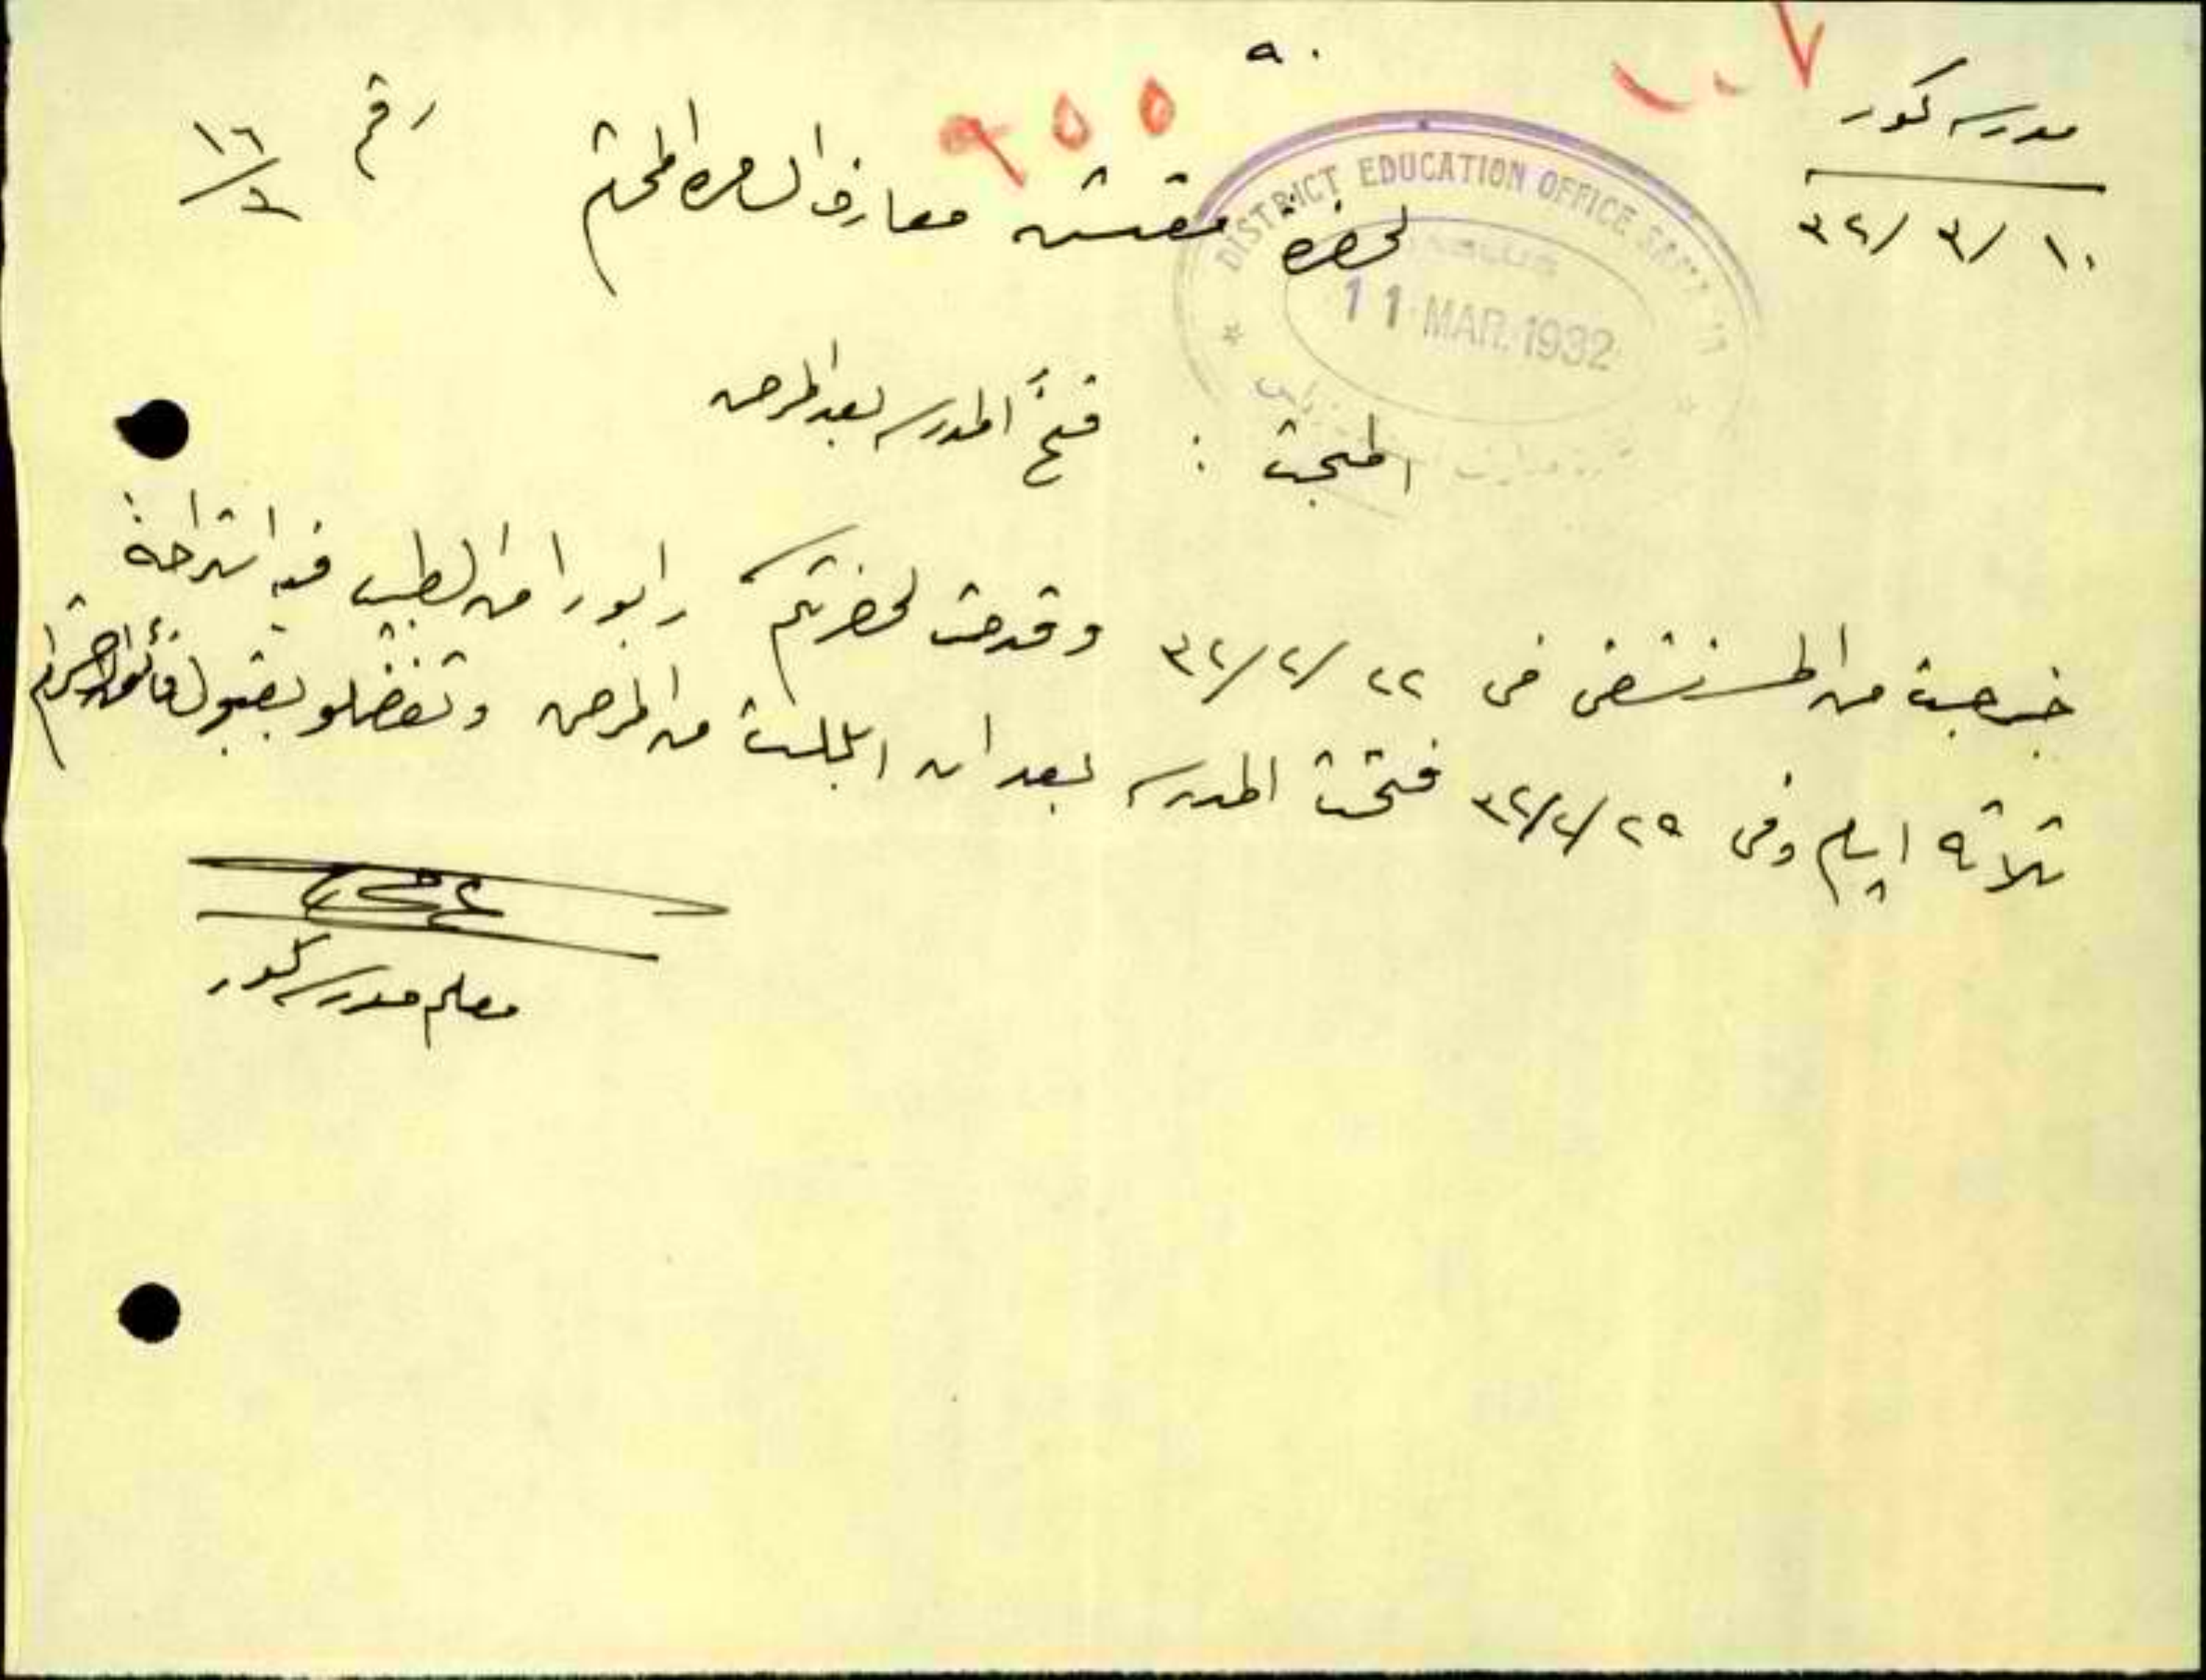 ٩٠
١٠٧
٩٥٥
مدرسة كور
١٠/٣/٣٢
رقم ١٦/٦
لحضرة مفتش معارف السامره المحترم
DISTRICT EDUCATION OFFICE
NABLUS
11 MAR. 1932
المبحث : فتح المدرسه بعد المرض
خرجت من المستشفى في ٢٢/٢/٣٢ وقدمت لحضرتكم رابورا من الطبيب فيه استراحة
ثلاثة ايام وفي ٢٩/٢/٣٢ فتحت المدرسه بعد ان ابللت من المرض وتفضلو بقبول فائق الاحترام
معلم مدرسة كور